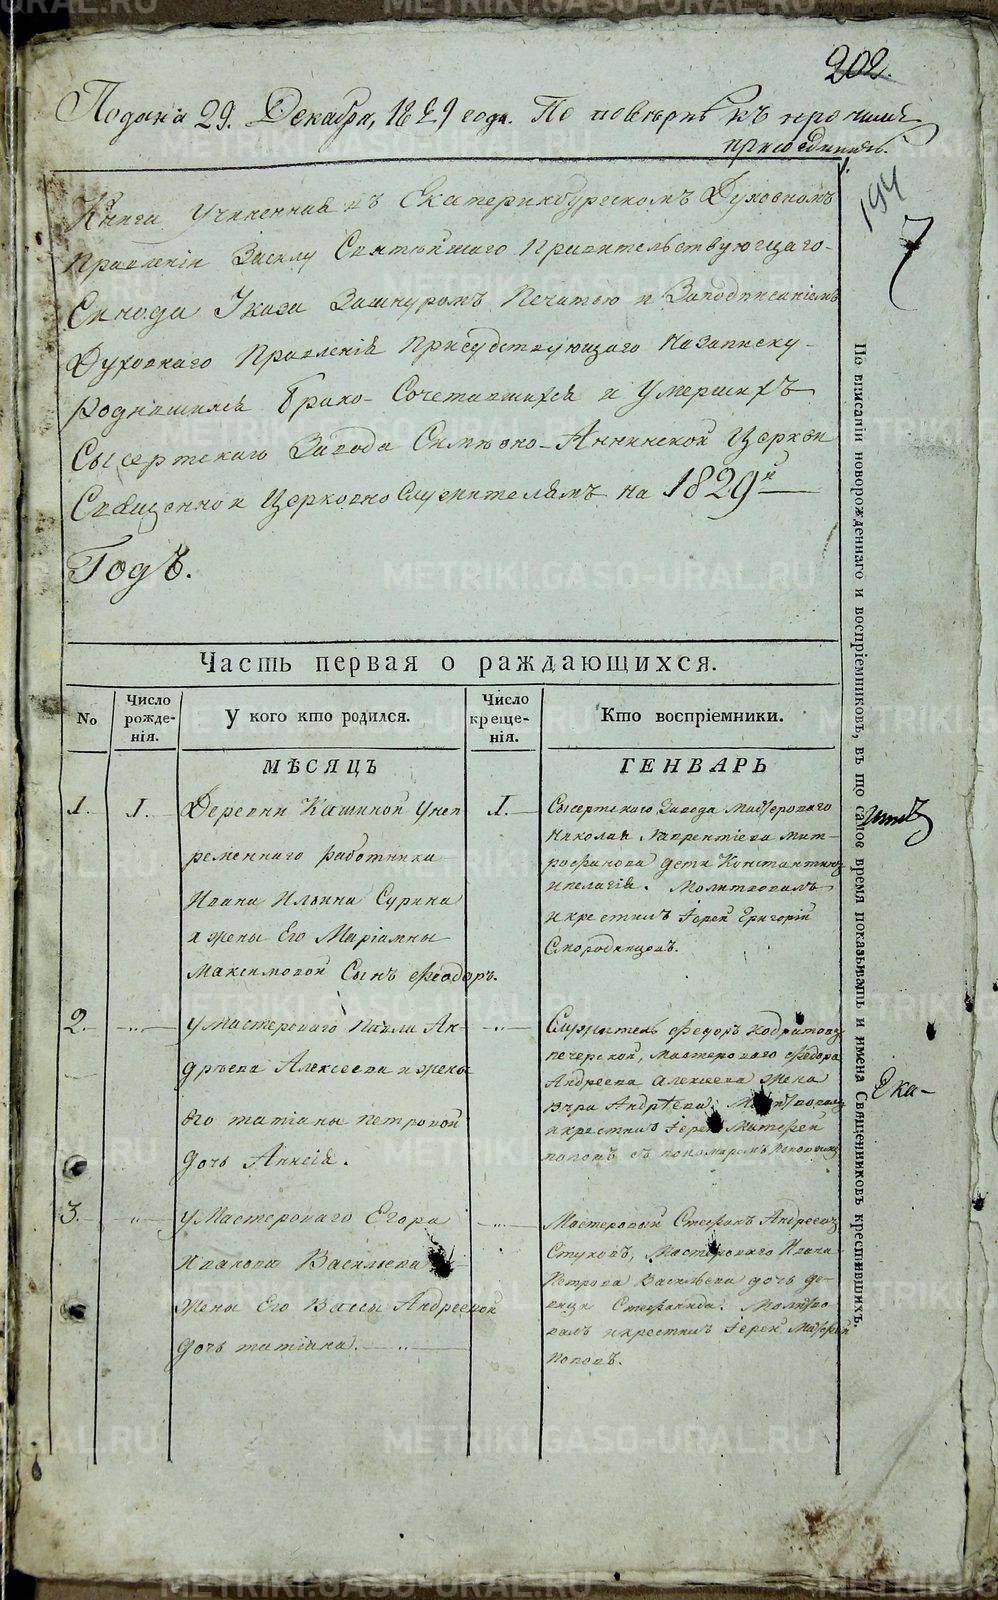 202.
Подана 29. Декабря, 1829 года. По поверкѣ къ прочимъ
присоединить.
194
7
Книга Учиненная въ Екатеринбургскомъ Духовномъ
Правленіи Всилу Святѣйшаго Правительствующаго
Синода Указа Зашнуромъ Печатью и Заподписаніемъ
Духовнаго Правленія Присудствующаго Назаписку
Родившихся Брако-Сочетавшихся и Умершихъ
Сысертскаго Завода Симѣоно-Аннинской Церкви
Священно и Церковно Служителямъ на 1829й
Годъ.
Часть первая о раждающихся.
No
Число рожде-нія.
У кого кто родился.
Число креще-нія.
Кто воспріемники.
МѢСЯЦЪ
ГЕНВАРЬ
1. 1. Деревни Кашиной Унеп
ременнаго работника
Ивана Ильина Сурина
и жены Его Маріамны
Максимовой Сынъ Феодоръ.
1. Сысертскаго Завода Мастероваго
Николая Лаврентіева Мит-
рофанова дети Константинъ
ипелагія. Молитвовалъ
икрестилъ Іерей Григорій
Смородинцовъ.
2. -„- УМастероваго Павла Ан-
дрѣева Алексеева и жены
Его татіаны петровой
дочь Анисія.
-„- Служитель Федоръ Кодратовъ
печерской, мастероваго Федора
Андреева Алексеева жена
вѣра Андрѣева. Молитвовалъ
икрестилъ Іерей Матфей
поповъ съ пономаремъ поповымъ
3. -„- УМастероваго Егора
Ивановa Васильева
жены Его Вассы Андреевой
дочь татіана. -„-
-„- Мастеровый Стефанъ Андреевъ
Стуковъ, Мастероваго Ивана
Петрова Васильева дочь де-
вица Стефанида. Молитво-
валъ икрестилъ Іерей Матфей
поповъ.
По вписаніи новорожденнаго и воспріемниковъ, въ що самое время показывать и имена Священниковъ крестившихъ.
Ека-
METRIKI.GASO-URAL.RU